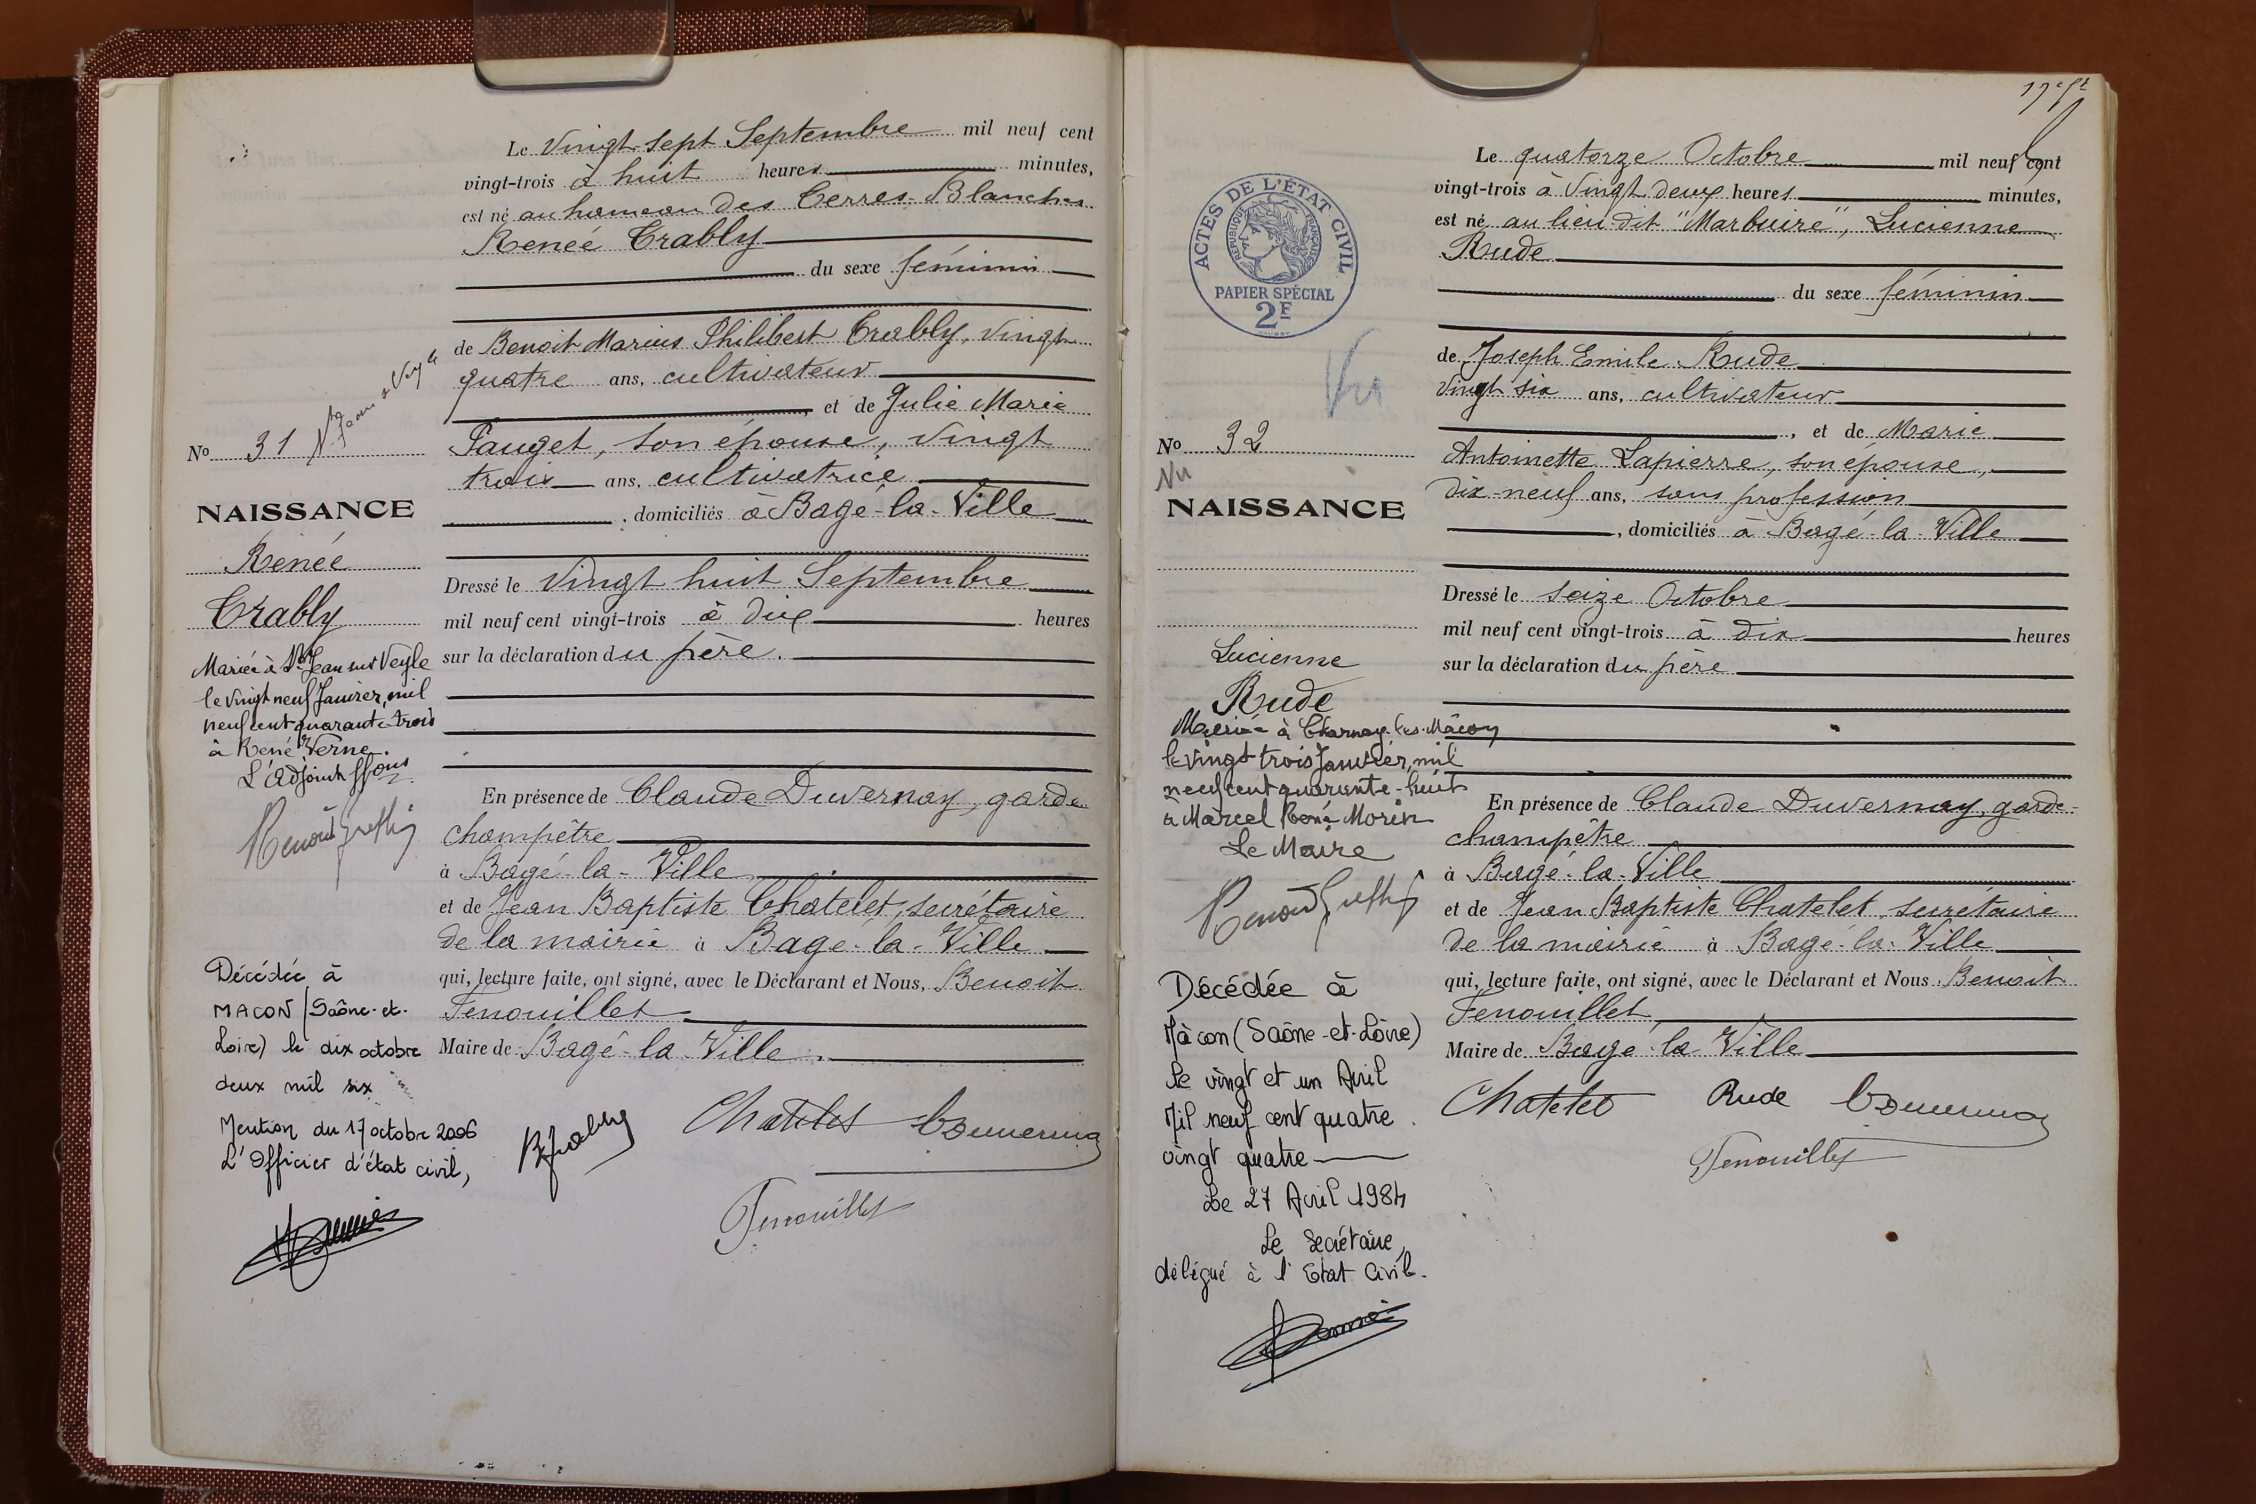 Le vingt sept Septembre mil neuf cent
vingt-trois à huit heures minutes,
est né au hameau des Terres-Blanches
Renée Trably
du sexe féminin
de Benoit Marius Philibert Trably, vingt
quatre ans, cultivateur
et de Julie Marie
Pauget, son épouse, vingt
trois ans, cultivatrice
, domiciliés à Bagé-la-Ville
Dressé le vingt huit Septembre
mil neuf cent vingt-trois à dix heures
sur la déclaration du père.
En présence de Claude Duvernay, garde
champêtre
à Bagé-la-Ville
et de Jean Baptiste Chatelet, secrétaire
de la mairie à Bagé-la-Ville
qui, lecture faite, ont signé, avec le Déclarant et Nous, Benoit
Fenouillet
Maire de Bagé-la-Ville.
BTrably Chatelet Duvernay
Fenouillet
No 31
NAISSANCE
Renée
Trably
Mariée à St Jean sur Veyle
le vingt neuf Janvier, mil
neuf cent quarante-trois
à René Verne.
L'adjoint
Décédée à
MACON (Saône-et-
Loire) le dix octobre
deux mil six
Mention du 17 octobre 2006
L'Officier d'état civil,
ACTES DE L'ÉTAT CIVIL
RÉPUBLIQUE FRANÇAISE
PAPIER SPÉCIAL
2F
Vu
No 32
Vu
NAISSANCE
Lucienne
Rude
Mariée à Charnay-les-Mâcon
le vingt trois Janvier, mil
neuf cent quarante-huit
à Marcel René Morin
Le Maire
Décédée à
Mâcon (Saône-et-Loire)
le vingt et un Avril
Mil neuf cent quatre
vingt quatre
Le 27 Avril 1984
Le Secrétaire
délégué à l'Etat Civil.
Le quatorze Octobre mil neuf cent
vingt-trois à vingt deux heures minutes,
est né au lieu-dit "Marbuire", Lucienne
Rude
du sexe féminin
de Joseph Emile Rude
vingt six ans, cultivateur
, et de Marie
Antoinette Lapierre, son épouse,
dix-neuf ans, sans profession
, domiciliés à Bagé-la-Ville
Dressé le seize Octobre
mil neuf cent vingt-trois à dix heures
sur la déclaration du père
En présence de Claude Duvernay, garde-
champêtre
à Bagé-la-Ville
et de Jean Baptiste Chatelet, secrétaire
de la mairie à Bagé-la-Ville
qui, lecture faite, ont signé, avec le Déclarant et Nous Benoit
Fenouillet,
Maire de Bagé-la-Ville
Chatelet Rude Duvernay
Fenouillet